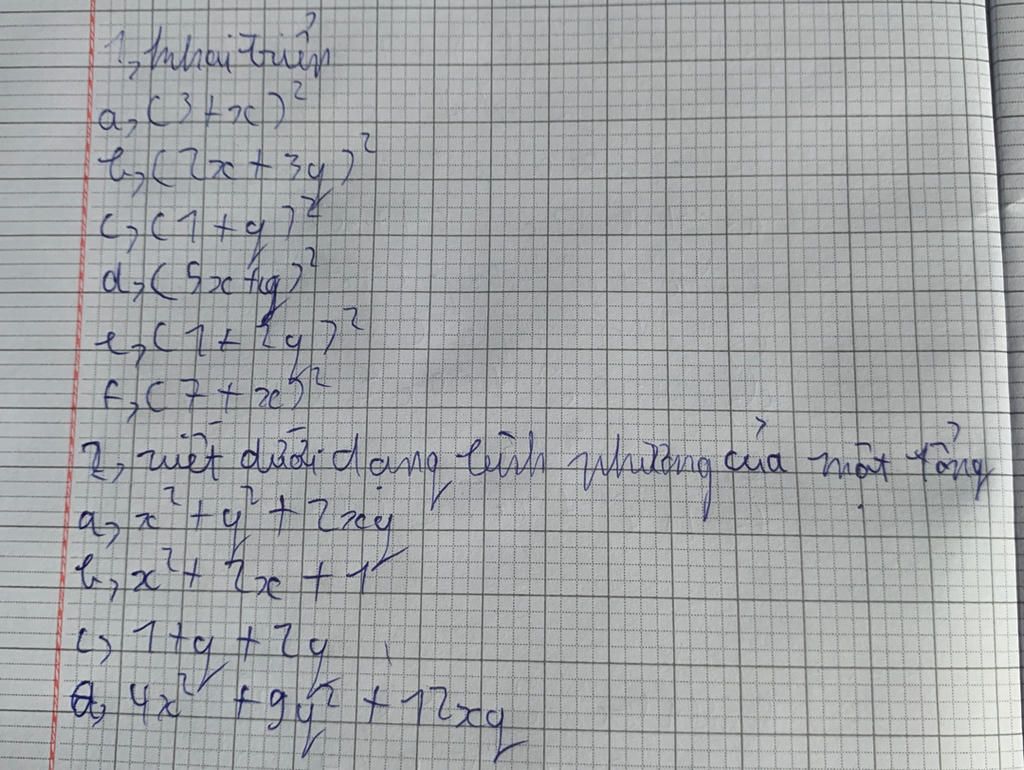 1, Khai triển
a, (3+x)²
b, (2x + 3y)²
c, (1+y)²
d, (5x+y)²
e, (1+2y)²
f, (7+x)²
2, viết dưới dạng bình phương của một tổng
a, x²+y²+2xy
b, x²+2x+1
c, 1+y+2y
d, 4x²+9y²+12xy